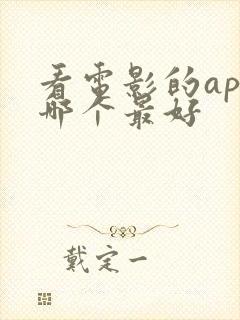 看电影的ap
哪个最好
戴定一